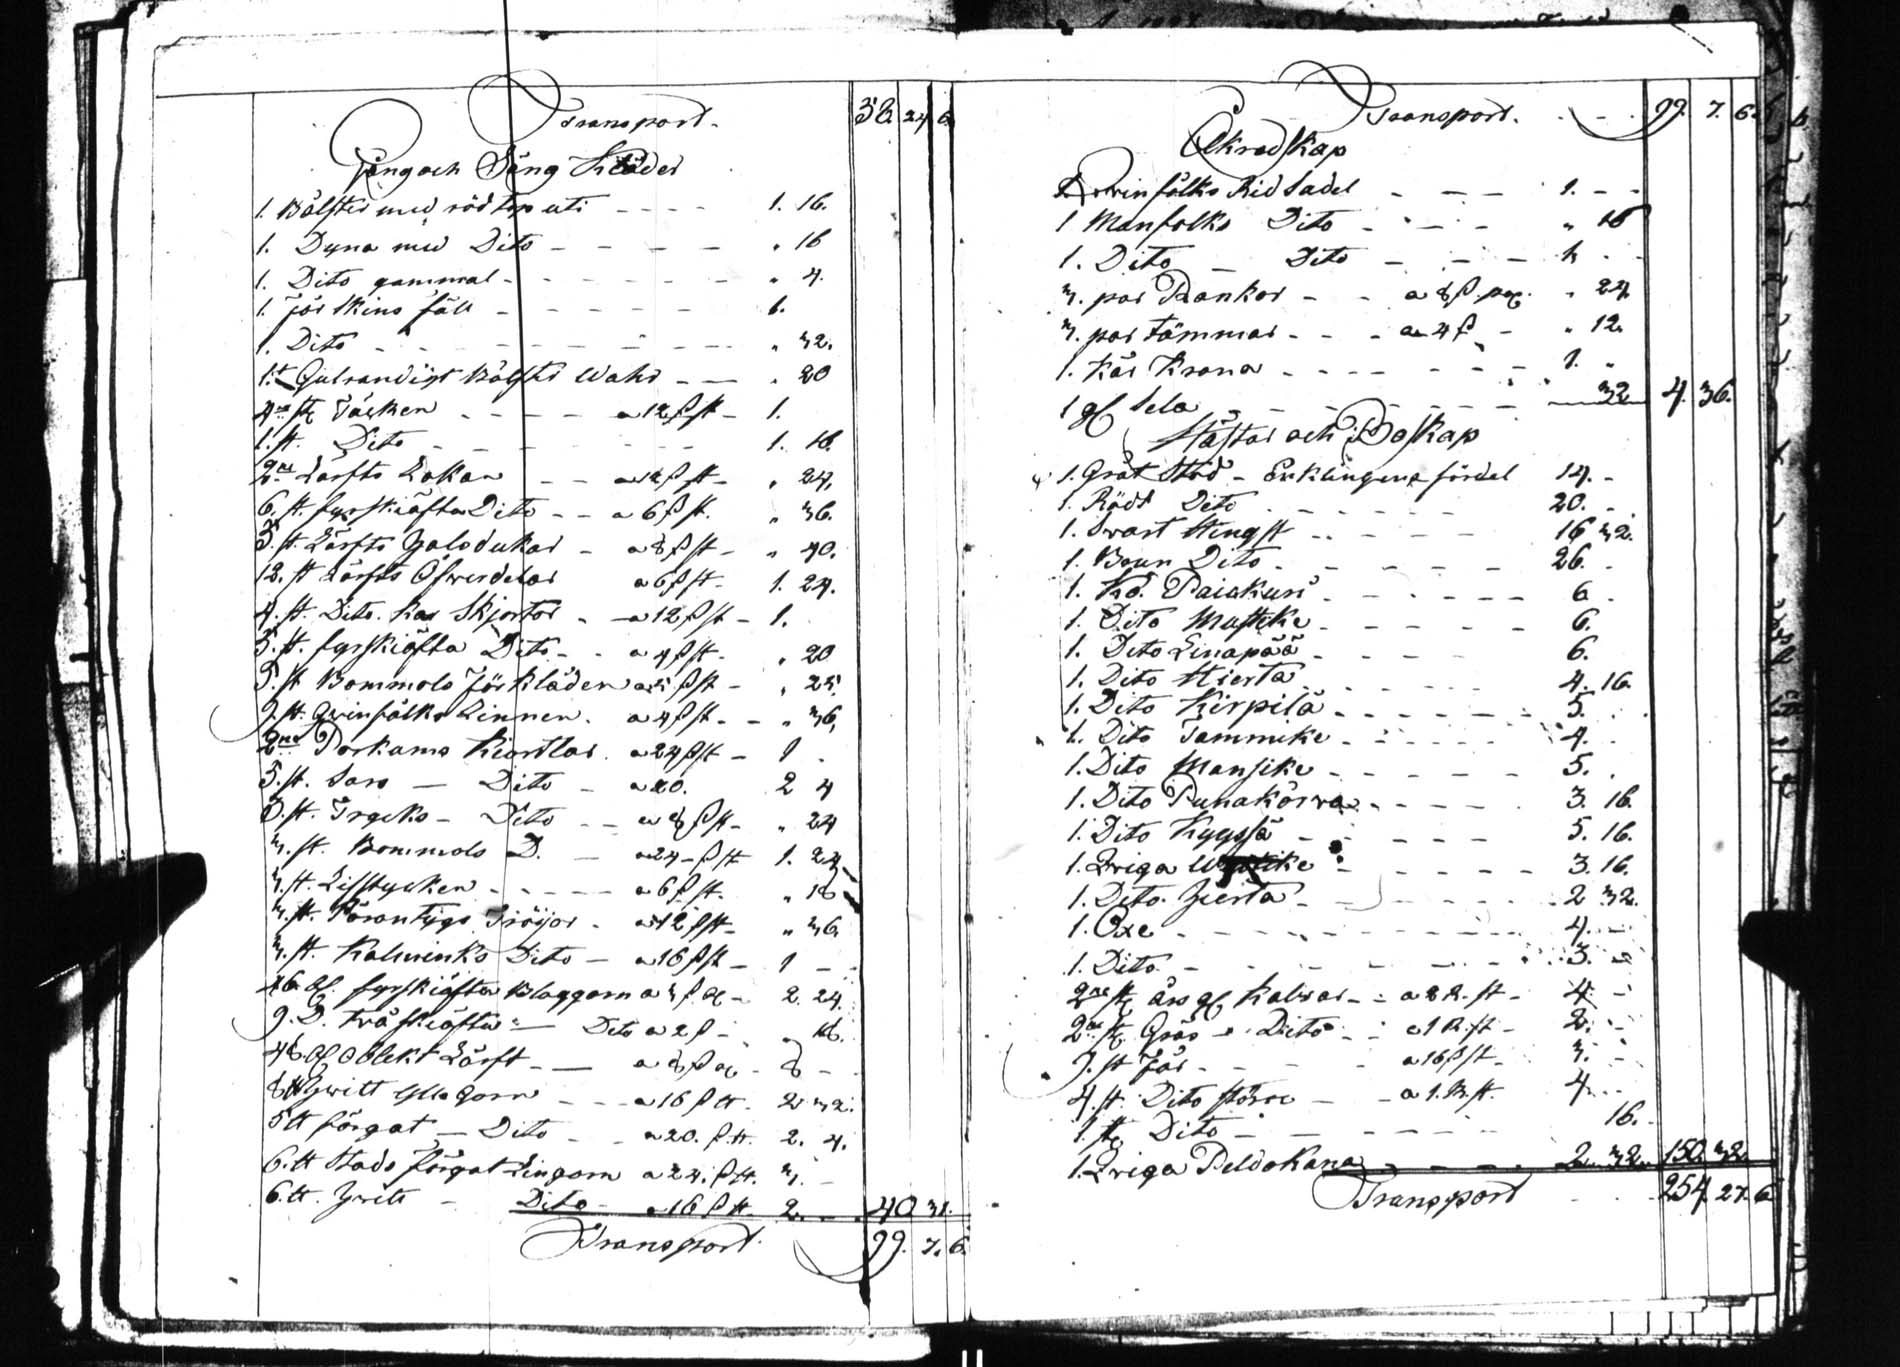 Transport. 58. 24. 6.
Gång och Säng Kläder
1. Bålster med röd top uti - - - - 1. 16.
1. Dyna med Dito - - - - - „ 16
1. Dito gammal - - - - - - „ 4.
1. fårskins fäll - - - - - - 1.
1. Dito - - - - - - - - „ 32.
1. Gulrandigt Bålster Wahr - - - „ 20
4. st. Täcken - - - - a 12 ß st - 1.
1. st. Dito - - - - - - 1. 16.
2. Lärfts Lakan - - a 12 ß st - „ 24.
6. st. fyrskiäfta Dito - - a 6 ß st. „ 36.
5. st. Lärfts Halsdukar - a 8 ß st - „ 40.
12. st Lärfts Öfwerdelar a 6 ß st - 1. 24.
4. st. Dito. Kar Skjortor - a 12 ß st - 1.
5. st. fyrskiäfta Dito - - a 4 ß st. „ 20
5. st Bommols förkläden a 5 ß st - „ 25.
9. st. Qwinfolks Linnen. a 4 ß st. - - „ 36.
2 Kiortlar. a 24 ß st - 1 -
5. st. Sars - Dito - a 20. 2 4
3. st. - Dito - - a 8 ß st - „ 24
3. st. Bommols D. - a 24 - ß st 1. 24
3. st. Lifstycken - - - - - a 6 ß st. „ 18
3. st. Tröijor - a 12 ß st - „ 36.
3. st. Kalminks Dito - a 16 ß st - 1 - -
fyrskiäfta Blaggarn a 3 ß 2. 24.
9. D. Tråskiäfta - Dito a 2 ß - „ 18.
48. Oblekt Lärft - - a 8 ß - 8 -
8 ℔ Hwitt Ulla garn - - a 16 ß ℔. 2 32.
5 ℔ färgat - Dito - - a 20. ß ℔. 2. 4.
6. ℔ Stads färgat Lingarn a 24. ß ℔. 3. -
6. ℔. Hwitt - Dito - a 16 ß ℔. 2. - - 40. 31.
Transport. 99. 7. 6.
Transport. - - - 99. 7. 6.
Åkredskap
1 Qwinfolks Rid Sadel - - - 1. - -
1 Manfolks Dito - - - „ 16
1. Dito - Dito - - - 1. - -
3. par Rankor - - a 8 ß par. „ 24
3. par Tömmar - - - a 4 ß - „ 12.
1. Kär Krana - - - - - - - 1. „
1 gl Sela - - - - - - 32 4. 36.
Hästar och Boskap
1. Gråt Stod - Enklingens fördel 14. -
1. Rödt Dito - - - - - - 20. -
1. Swart Hingst - - - - - 16 32.
1. Brun Dito - - - - - - 26. -
1. Ko. Paiakuri - - - - - - 6 -
1. Dito Mustike - - - - - 6.
1. Dito Linapää - - - - 6.
1. Dito Hierta - - - - - 4. 16.
1. Dito Kirpilä - - - - - - 5. -
1. Dito Tammike - - - - - 4. -
1. Dito Mansike - - - - - 5. -
1. Dito Punakorwa - - - - 3. 16.
1. Dito Kyyssä - - - - - 5. 16.
1. Qwiga - - - - - 3. 16.
1. Dito. Hierta - - - - - - 2 32.
1. Oxe - - - - - - - - - 4. - -
1. Dito - - - - - - - 3. -
2 st års gl. Kalwar - - a 2 R. st - 4 -
2 st. - Dito - - a 1 R. st - 2. -
9. st får - - - - a 16 ß st - 3. -
4. st. Dito större - - a 1. R. st. 4. - -
1. st Dito - - - - - - 16. -
1. Qwiga Peldokana - - - - 2. 32. 150. 32
Transport - - - 254. 27. 6